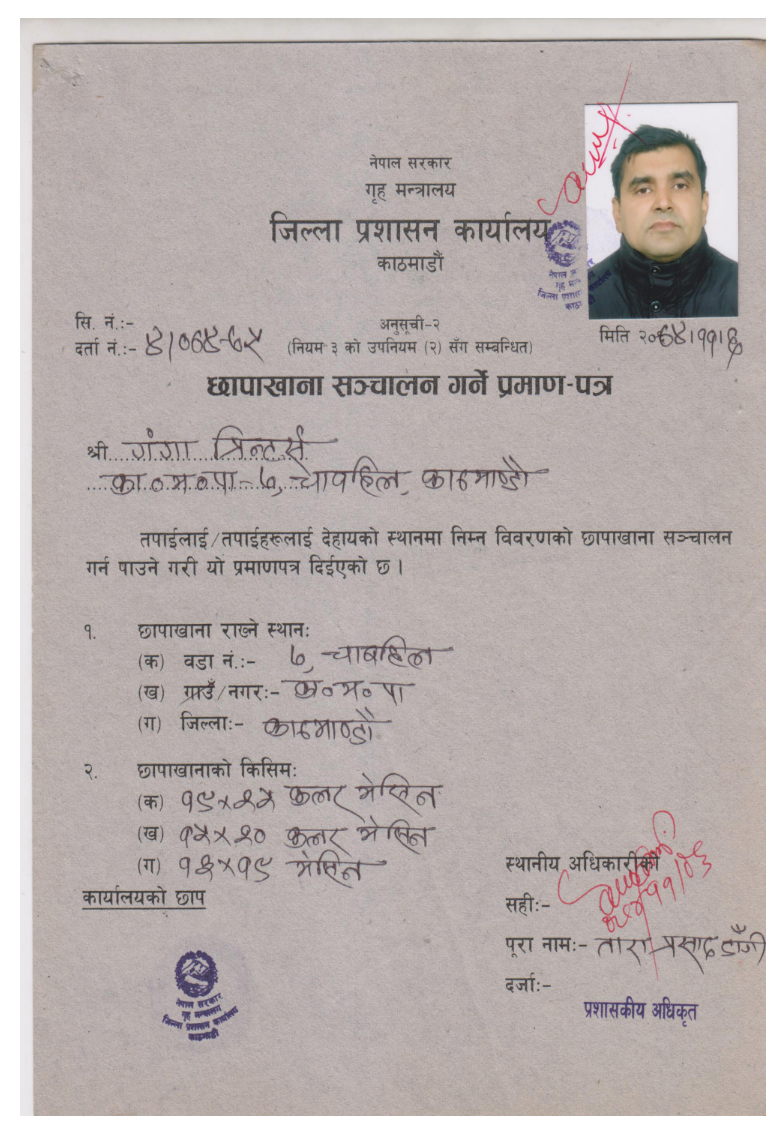 नेपाल सरकार
गृह मन्त्रालय
जिल्ला प्रशासन कार्यालय
काठमाडौं
सि. नं.:-
अनुसूची-२
मिति २०६४।११।६
दर्ता नं.:- ४/०६४-६५ (नियम ३ को उपनियम (२) सँग सम्बन्धित)
छापाखाना सञ्चालन गर्ने प्रमाण-पत्र
श्री गंगा प्रिन्टर्स
का०म०पा-७, चावहिल, काठमाण्डौ
तपाईलाई/तपाईहरूलाई देहायको स्थानमा निम्न विवरणको छापाखाना सञ्चालन
गर्न पाउने गरी यो प्रमाणपत्र दिईएको छ ।
१. छापाखाना राख्ने स्थान:
(क) वडा नं.:- ७, चाबहिल
(ख) गाउँ/नगर:- का०म०पा
(ग) जिल्ला:- काठमाण्डौ
२. छापाखानाको किसिम:
(क) १९×२५ कलर मेसिन
(ख) १५×२० कलर मेसिन
(ग) १३×१९ मेसिन
स्थानीय अधिकारीको
कार्यालयको छाप
सही:-
पूरा नाम:- तारा प्रसाद डाँगी
दर्जा:-
प्रशासकीय अधिकृत
नेपाल सरकार
गृह मन्त्रालय
जिल्ला प्रशासन कार्यालय
काठमाडौं